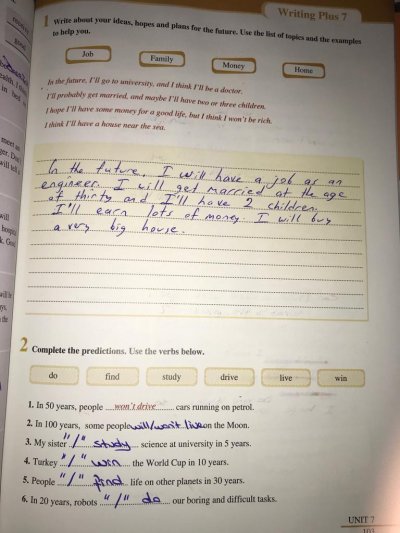 Writing Plus 7
1 Write about your ideas, hopes and plans for the future. Use the list of topics and the examples
to help you.
Job
Family
Money
Home
In the future, I'll go to university, and I think I'll be a doctor.
I'll probably get married, and maybe I'll have two or three children.
I hope I'll have some money for a good life, but I think I won't be rich.
I think I'll have a house near the sea.
In the future, I will have a job as an
engineer. I will get married at the age
of thirty and I'll have 2 children.
I'll earn lots of money. I will buy
a very big house.
2 Complete the predictions. Use the verbs below.
do
find
study
drive
live
win
1. In 50 years, people won't drive cars running on petrol.
2. In 100 years, some people will/won't live on the Moon.
3. My sister "/" study science at university in 5 years.
4. Turkey "/" win the World Cup in 10 years.
5. People "/" find life on other planets in 30 years.
6. In 20 years, robots "/" do our boring and difficult tasks.
UNIT 7
103